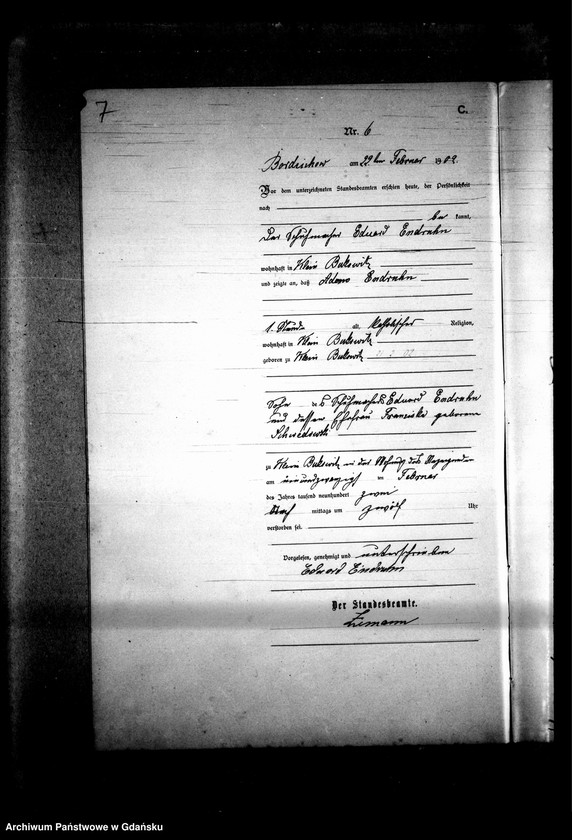 7
C.
Nr. 6
Bordzichow am 22ten Februar 1902.
Vor dem unterzeichneten Standesbeamten erschien heute, der Persönlichkeit
nach
be kannt,
der Schuhmacher Eduard Endruhn
wohnhaft in Klein Bukowitz
und zeigte an, daß Adam Endruhn
1. Stunde alt, katholischer Religion,
wohnhaft in Klein Bukowitz
geboren zu Klein Bukowitz
Sohn des Schuhmachers Eduard Endruhn
und dessen Ehefrau Franziska geborene
zu Klein Bukowitz in der Wohnung des Anzeigenden
am einundzwanzigst en Februar
des Jahres tausend neunhundert zwei
Nach mittags um zwölf Uhr
verstorben sei.
Vorgelesen, genehmigt und unterschrieben
Eduard Endruhn
Der Standesbeamte.
Ziemann
Archiwum Państwowe w Gdańsku